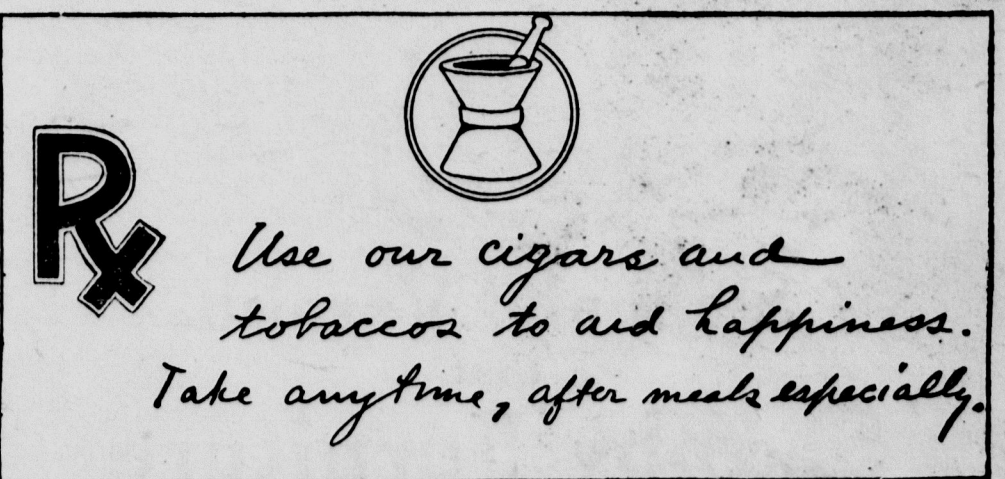 Rx
Use our cigars and
tobaccos to aid happiness.
Take anytime, after meals especially.